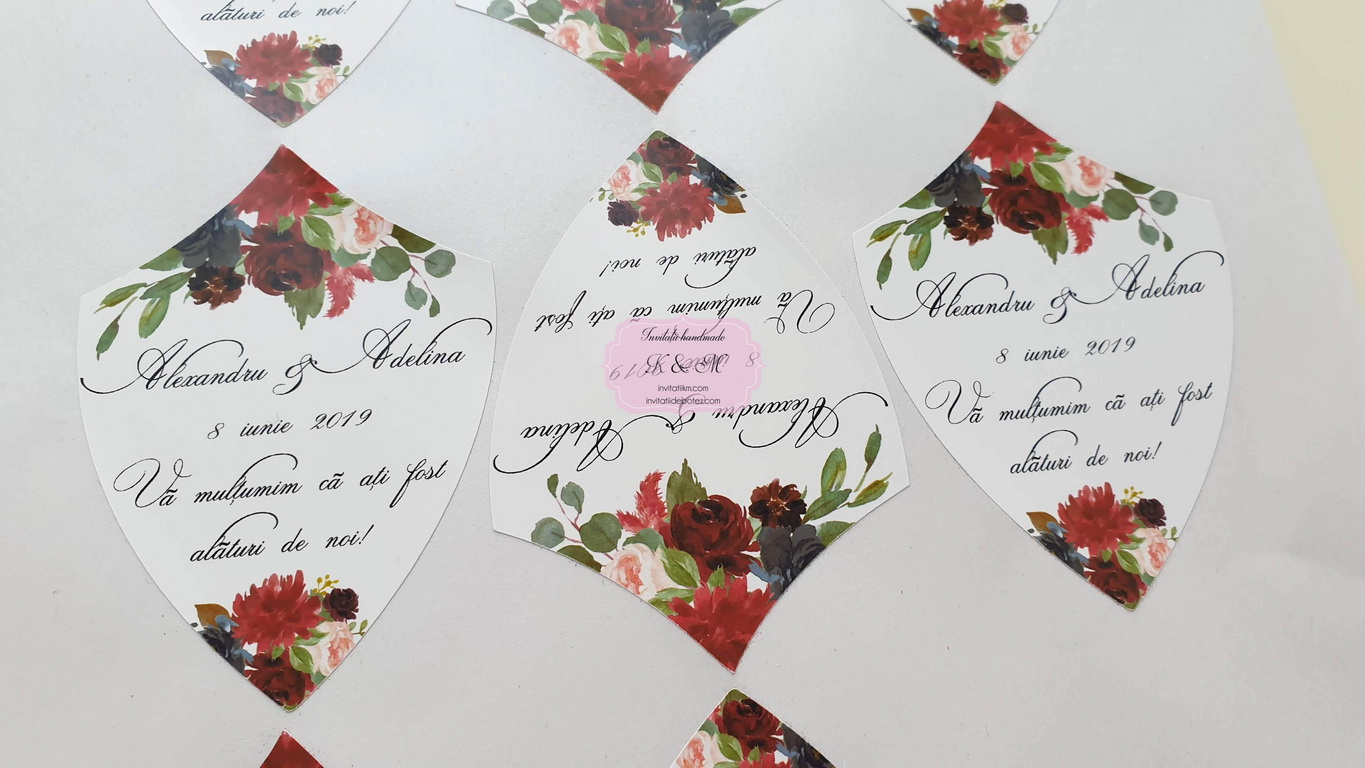 alături de noi!
Alexandru & Adelina
8 iunie 2019
Vă mulțumim că ați fost
alături de noi!
Alexandru & Adelina
8 iunie 2019
Vă mulțumim că ați fost
alături de noi!
Invitații handmade
K & M
invitatiikm.com
invitatiidebotez.com
Alexandru & Adelina
8 iunie 2019
Vă mulțumim că ați fost
alături de noi!